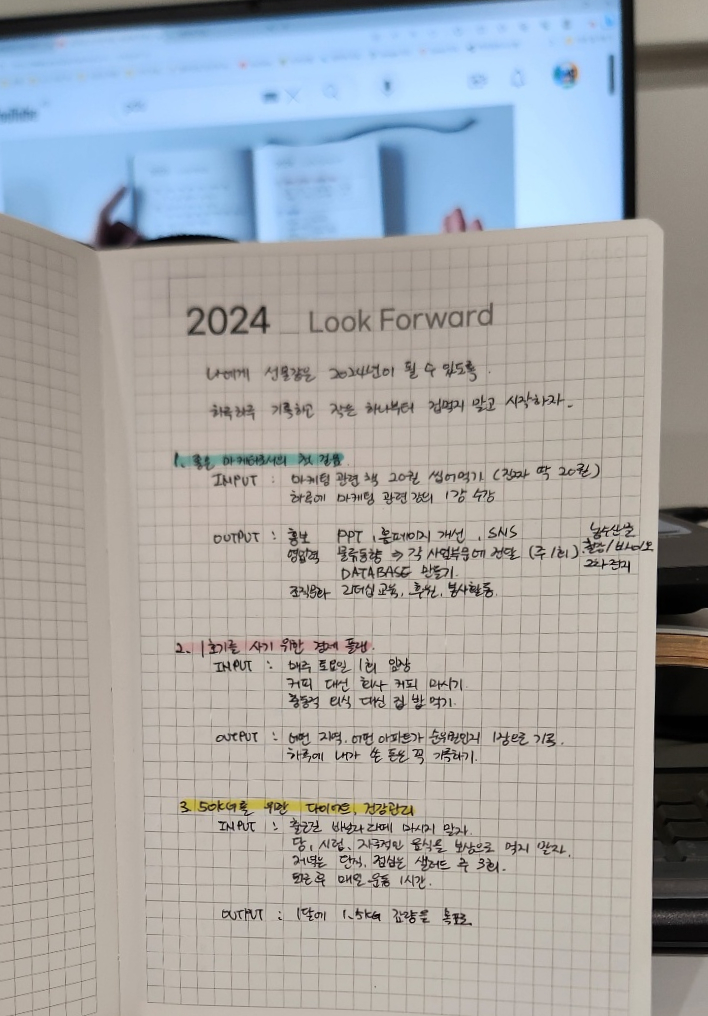 2024 Look Forward
나에게 선물같은 2024년이 될 수 있도록.
하루하루 기록하고 작은 하나부터 겁먹지 말고 시작하자.
1. 좋은 마케터로서의 첫 걸음
INPUT : 마케팅 관련 책 20권 씹어먹기 (진짜 딱 20권)
하루에 마케팅 관련 강의 1강 수강
OUTPUT : 홍보 PPT, 홈페이지 개선, SNS
영업력 물류동향 ⇒ 각 사업부문에 전달 (주 1회)
농수산물
철강/바이오
2차전지
DATABASE 만들기.
조직문화 리더십 교육, 후원, 봉사활동.
2. 1호기를 사기 위한 경제 플랜.
INPUT : 매주 토요일 1회 임장
커피 대신 회사 커피 마시기.
충동적 외식 대신 집 밥 먹기.
OUTPUT : 어떤 지역, 어떤 아파트가 순위권인지 1장으로 기록.
하루에 내가 쓴 돈은 꼭 기록하기.
3. 50KG를 위한 다이어트, 건강관리
INPUT : 출근길 바닐라라떼 마시지 말자.
당, 시럽, 자극적인 음식을 보상으로 먹지 말자.
저녁은 단식, 점심은 샐러드 주 3회.
퇴근 후 매일 운동 1시간.
OUTPUT : 1달에 1.5KG 감량을 목표로